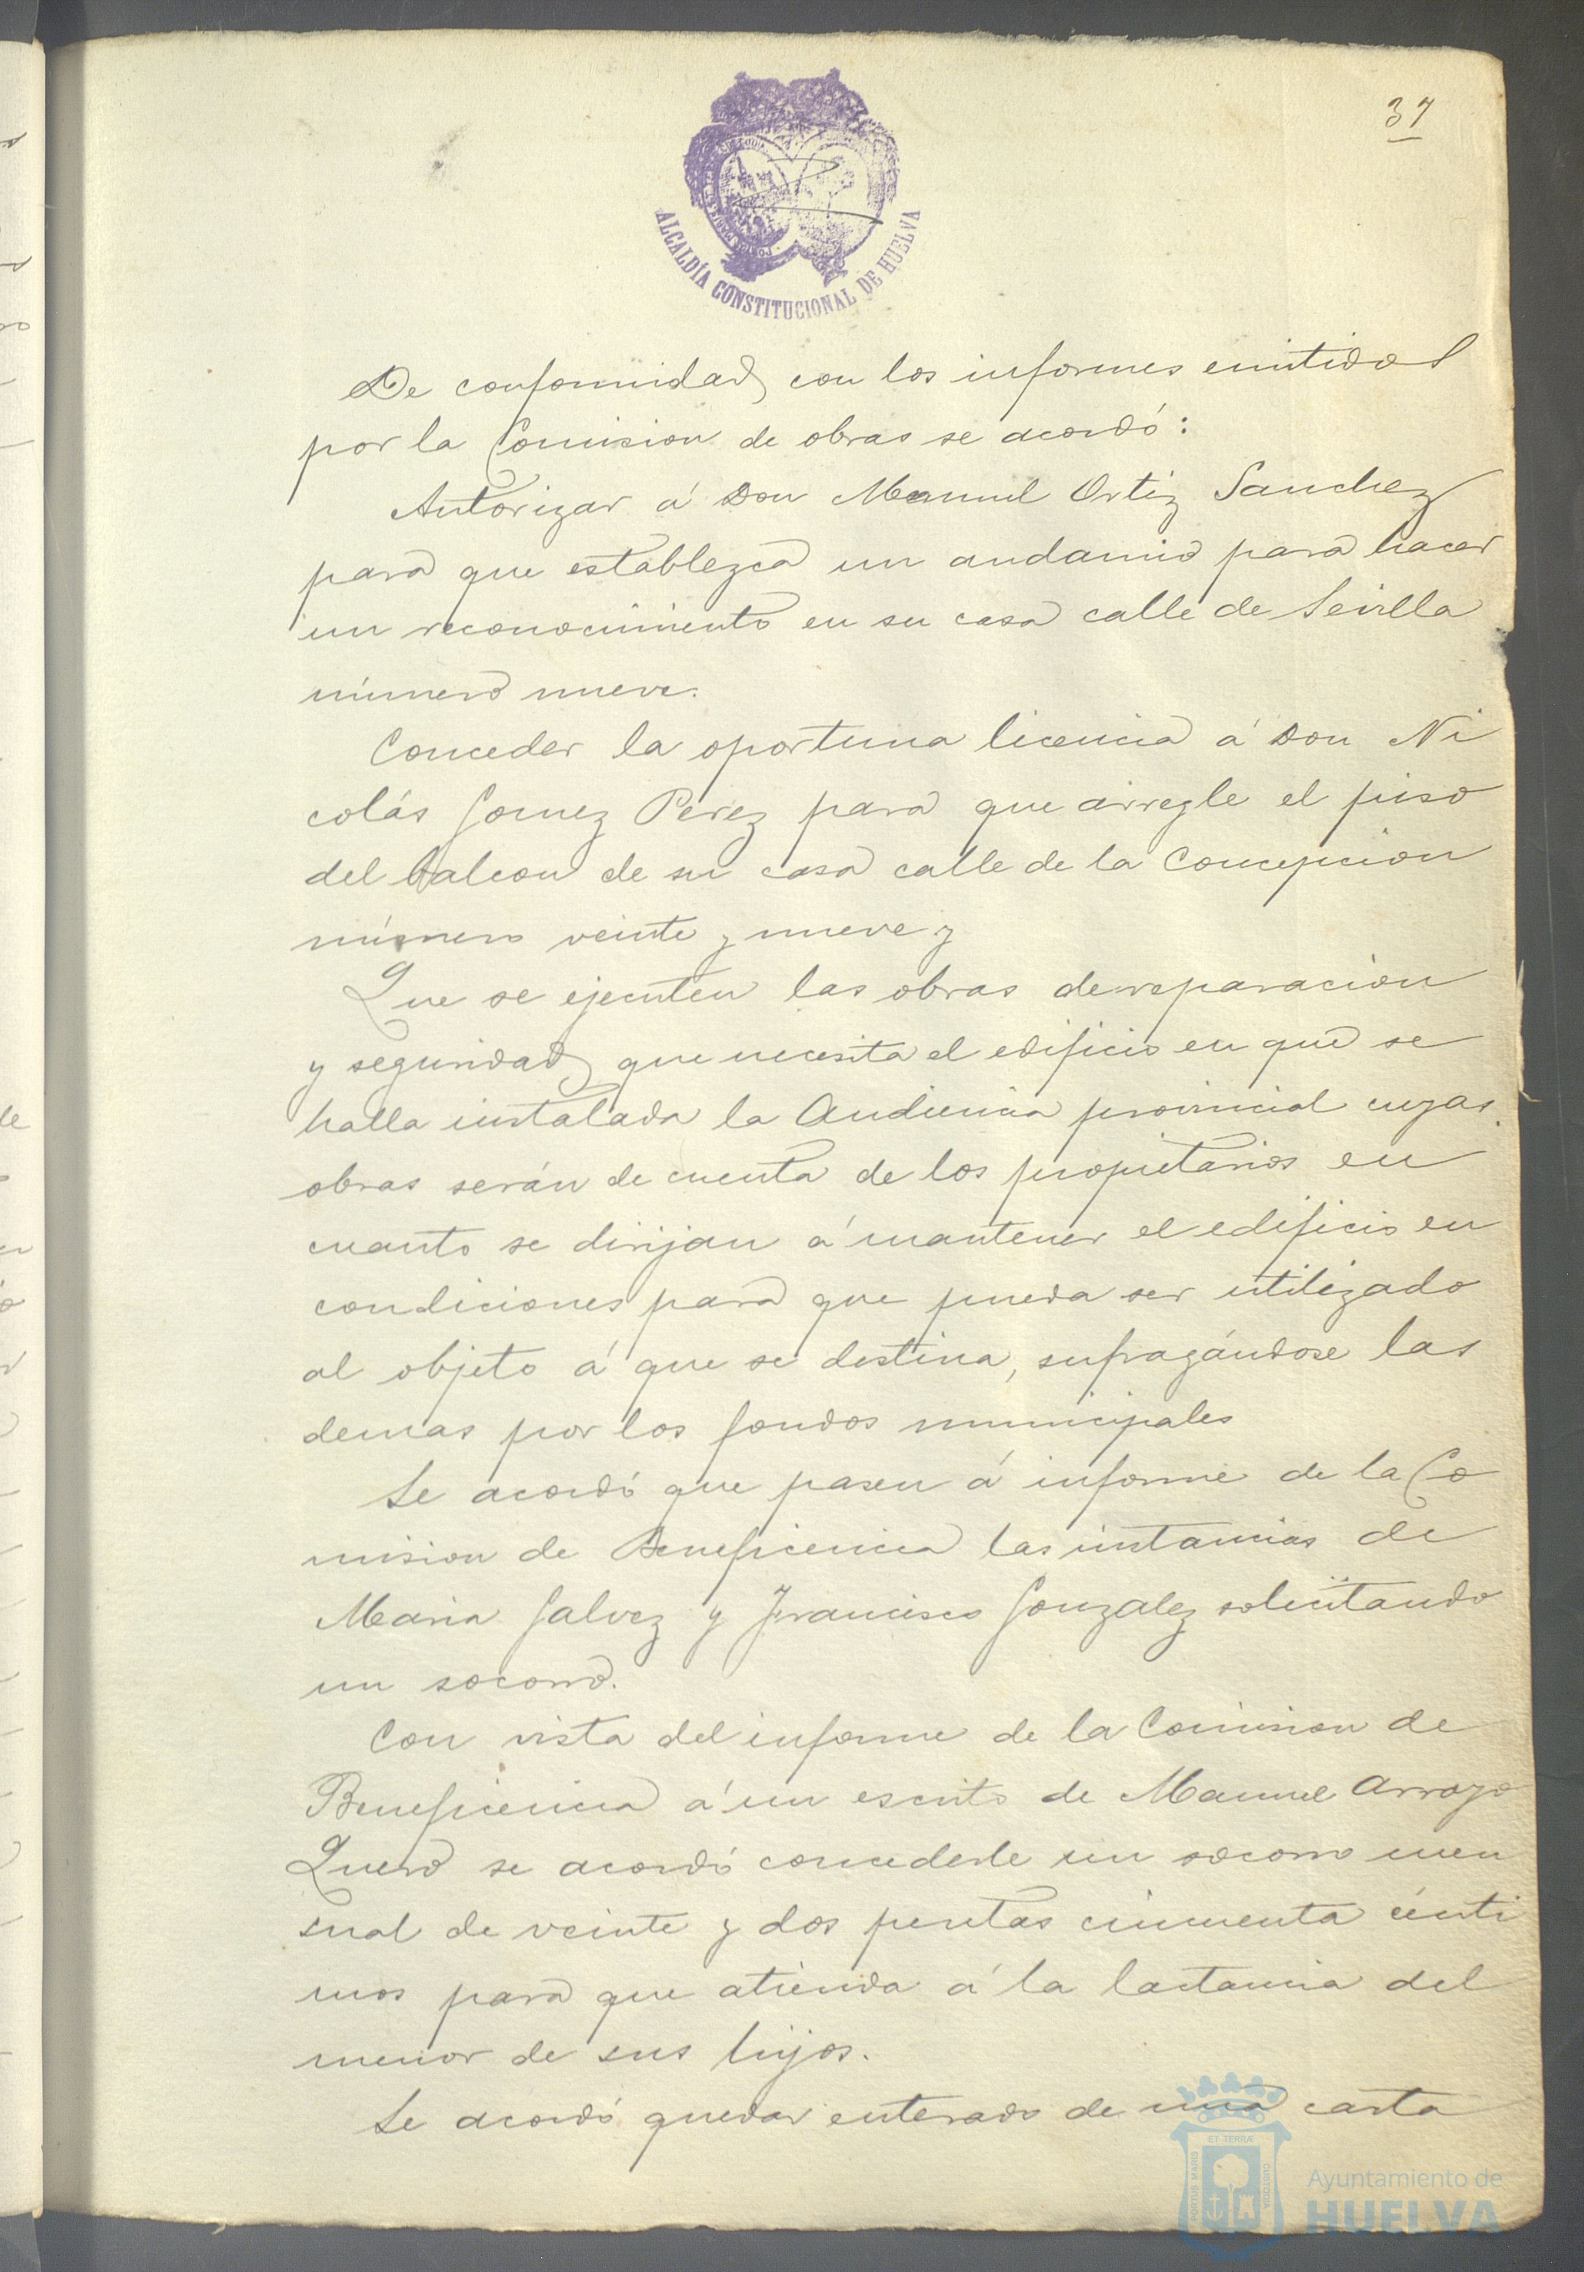 37
ALCALDÍA CONSTITUCIONAL DE HUELVA
De conformidad con los informes emitidos
por la Comision de obras se acordó:
Autorizar á Don Manuel Ortiz Sanchez
para que establezca un andamio para hacer
un reconocimiento en su casa calle de Sevilla
número nueve.
Conceder la oportuna licencia á Don Ni
colás Gomez Perez para que arregle el piso
del balcon de su casa calle de la Concepcion
número veinte y nueve y
Que se ejecuten las obras de reparacion
y seguridad que necesita el edificio en que se
halla instalada la Audiencia provincial cuyas
obras serán de cuenta de los propietarios en
cuanto se dirijan á mantener el edificio en
condiciones para que pueda ser utilizado
al objeto á que se destina, sufragándose las
demas por los fondos municipales
Se acordó que pasen á informe de la Co
mision de Beneficencia las intancias de
Maria Galvez y Francisco Gonzalez solicitando
un socorro.
Con vista del informe de la Comision de
Beneficencia á un escrito de Manuel Arroyo
Quero se acordó concederle un socorro men
sual de veinte y dos pesetas cincuenta cénti
mos para que atienda á la lactancia del
menor de sus hijos.
Se acordó quedar enterado de una carta
PORTUS MARIS
ET TERRÆ
CUSTODIA
Ayuntamiento de
HUELVA